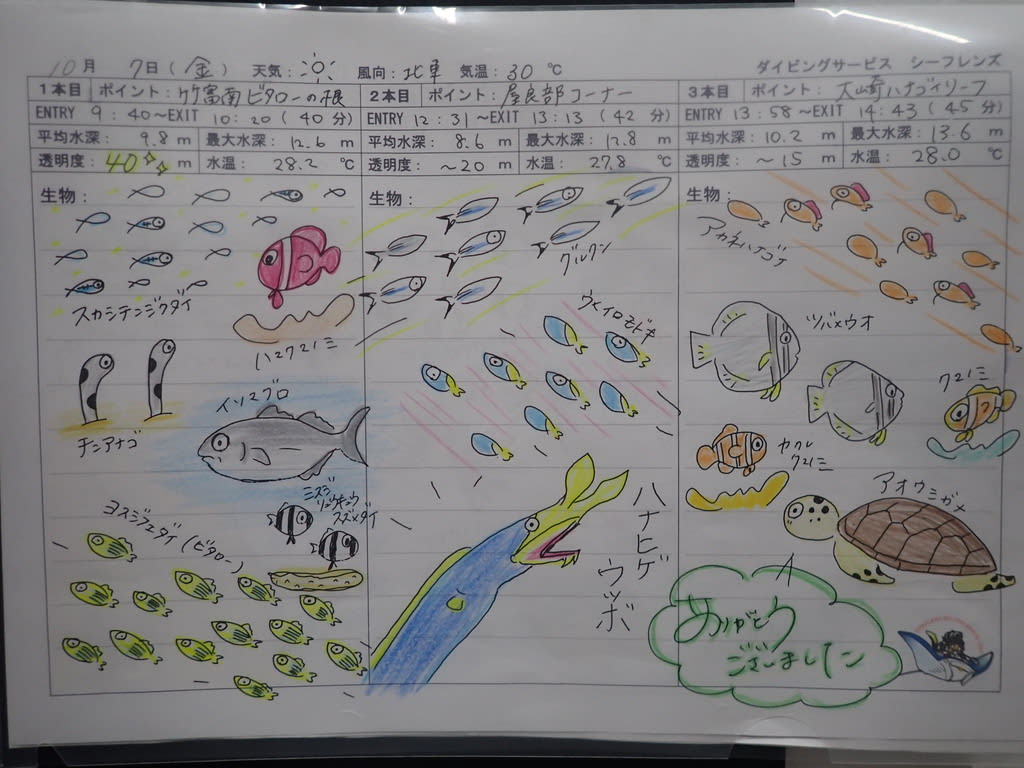 10月 7日(金) 天気: 風向: 北東 気温: 30 ℃ ダイビングサービス シーフレンズ
1本目 ポイント: 竹富南ビタローの根
ENTRY 9:40~EXIT 10:20 (40分)
平均水深: 9.8 m 最大水深: 12.6 m
透明度: 40 m 水温: 28.2 ℃
生物:
スカシテンジクダイ
ハマクマノミ
チンアナゴ
イソマグロ
ミスジリュウキュウスズメダイ
ヨスジフエダイ(ビタロー)
2本目 ポイント: 屋良部コーナー
ENTRY 12:31~EXIT 13:13 (42分)
平均水深: 8.6 m 最大水深: 12.8 m
透明度: ~20 m 水温: 27.8 ℃
生物:
グルクン
ウメイロモドキ
ハナヒゲ
ウツボ
3本目 ポイント: 大崎ハナゴイリーフ
ENTRY 13:58~EXIT 14:43 (45分)
平均水深: 10.2 m 最大水深: 13.6 m
透明度: ~15 m 水温: 28.0 ℃
生物:
アカネハナゴイ
ツバメウオ
クマノミ
カクレ
クマノミ
アオウミガメ
ありがとう
ございました